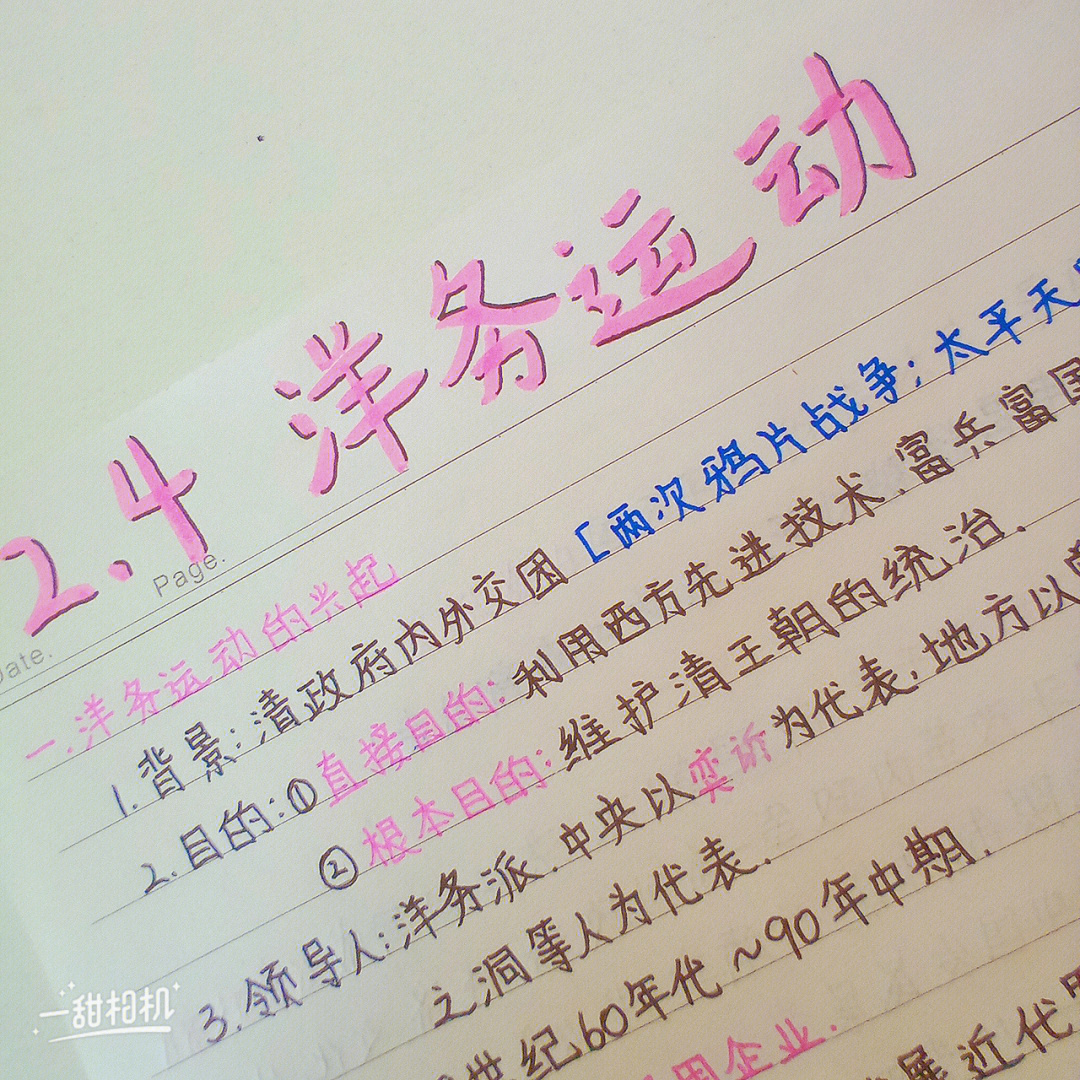 2.4 洋务运动
Page.
Date.
一.洋务运动的兴起
1.背景:清政府内外交困[两次鸦片战争;太平天
2.目的:①直接目的:利用西方先进技术.富兵富国
②根本目的:维护清王朝的统治.
3.领导人:洋务派.中央以奕䜣为代表.地方以
之洞等人为代表.
世纪60年代~90年中期.
用企业.
展近代
一甜相机